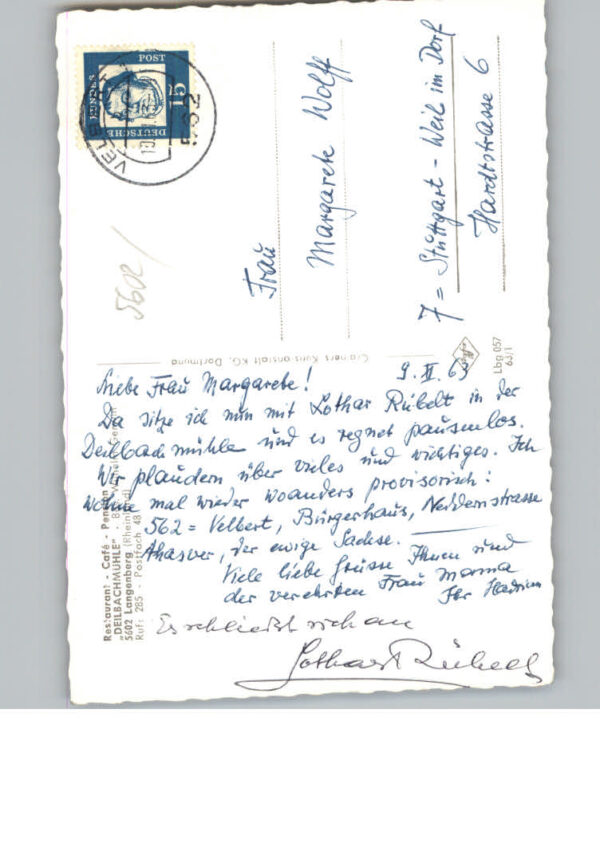 DEUTSCHE
BUNDES
POST
15
VELB
Frau
Margarete Wolff
7 = Stuttgart - Weil im Dorf
Hardtstrasse 6
5602/
Cramers Kunstanstalt KG, Dortmund
Lbg 057
63/1
9. XI. 63
Liebe Frau Margarete!
Da sitze ich nun mit Lothar Rübelt in der
Deilbachmühle und es regnet pausenlos.
Wir plaudern über vieles und wichtiges. Ich
wohne mal wieder woanders provisorisch:
562 = Velbert, Bürgerhaus, Neddernstrasse
Ahasver, der ewige Sachse.
Viele liebe Grüsse Ihnen und
der verehrten Frau Mama
Ihr
Es schließt sich an
Lothar Rübelt
Restaurant - Café - Pension
„DEILBACHMÜHLE"
5602 Langenberg (Rheinland)
Ruf: 285 · Postfach 48